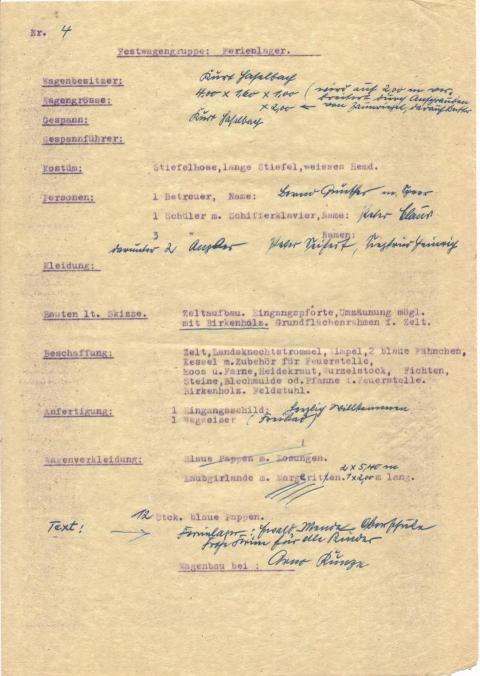 Nr. 4
Festwagengruppe: Ferienlager.
Wagenbesitzer: Kurt Haselbach
Wagengrösse: 4,00 x 1,60 x 1,00 (wird auf 2,00 m ver-
breitert durch
x 2,00 von
Gespann: Kurt Haselbach
Gespannführer:
Kostüm: Stiefelhose, lange Stiefel, weisses Hemd.
Personen: 1 Betreuer, Name: Bernd Günther m.
1 Schüler m. Schifferklavier, Name: Peter Claus
3 " Namen:
darunter 2 Peter Seifert, Siegfried Heinrich
Kleidung:
Bauten lt. Skizze. Zeltaufbau. Eingangspforte, Umzäunung mögl.
mit Birkenholz. Grundflächenrahmen f. Zelt.
Beschaffung: Zelt, Landsknechtstrommel, Wimpel, 2 blaue Fähnchen,
Kessel m. Zubehör für Feuerstelle,
Moos u. Farne, Heidekraut, Wurzelstock, Fichten,
Steine, Blechmulde od. Pfanne f. Feuerstelle.
Birkenholz. Feldstuhl.
Anfertigung: 1 Eingangsschild: Herzlich Willkommen
1 Wegweiser (Freibad)
Wagenverkleidung: Blaue Pappen m. Losungen.
2 x 5,40 m
Laubgirlande m. Margeriten. 1 x 2,00 m lang.
12 Stck. blaue Pappen.
Text: Ferienlager: Ewald Mende Oberschule
Frohe Ferien für alle Kinder
Wagenbau bei: Arno Kunze